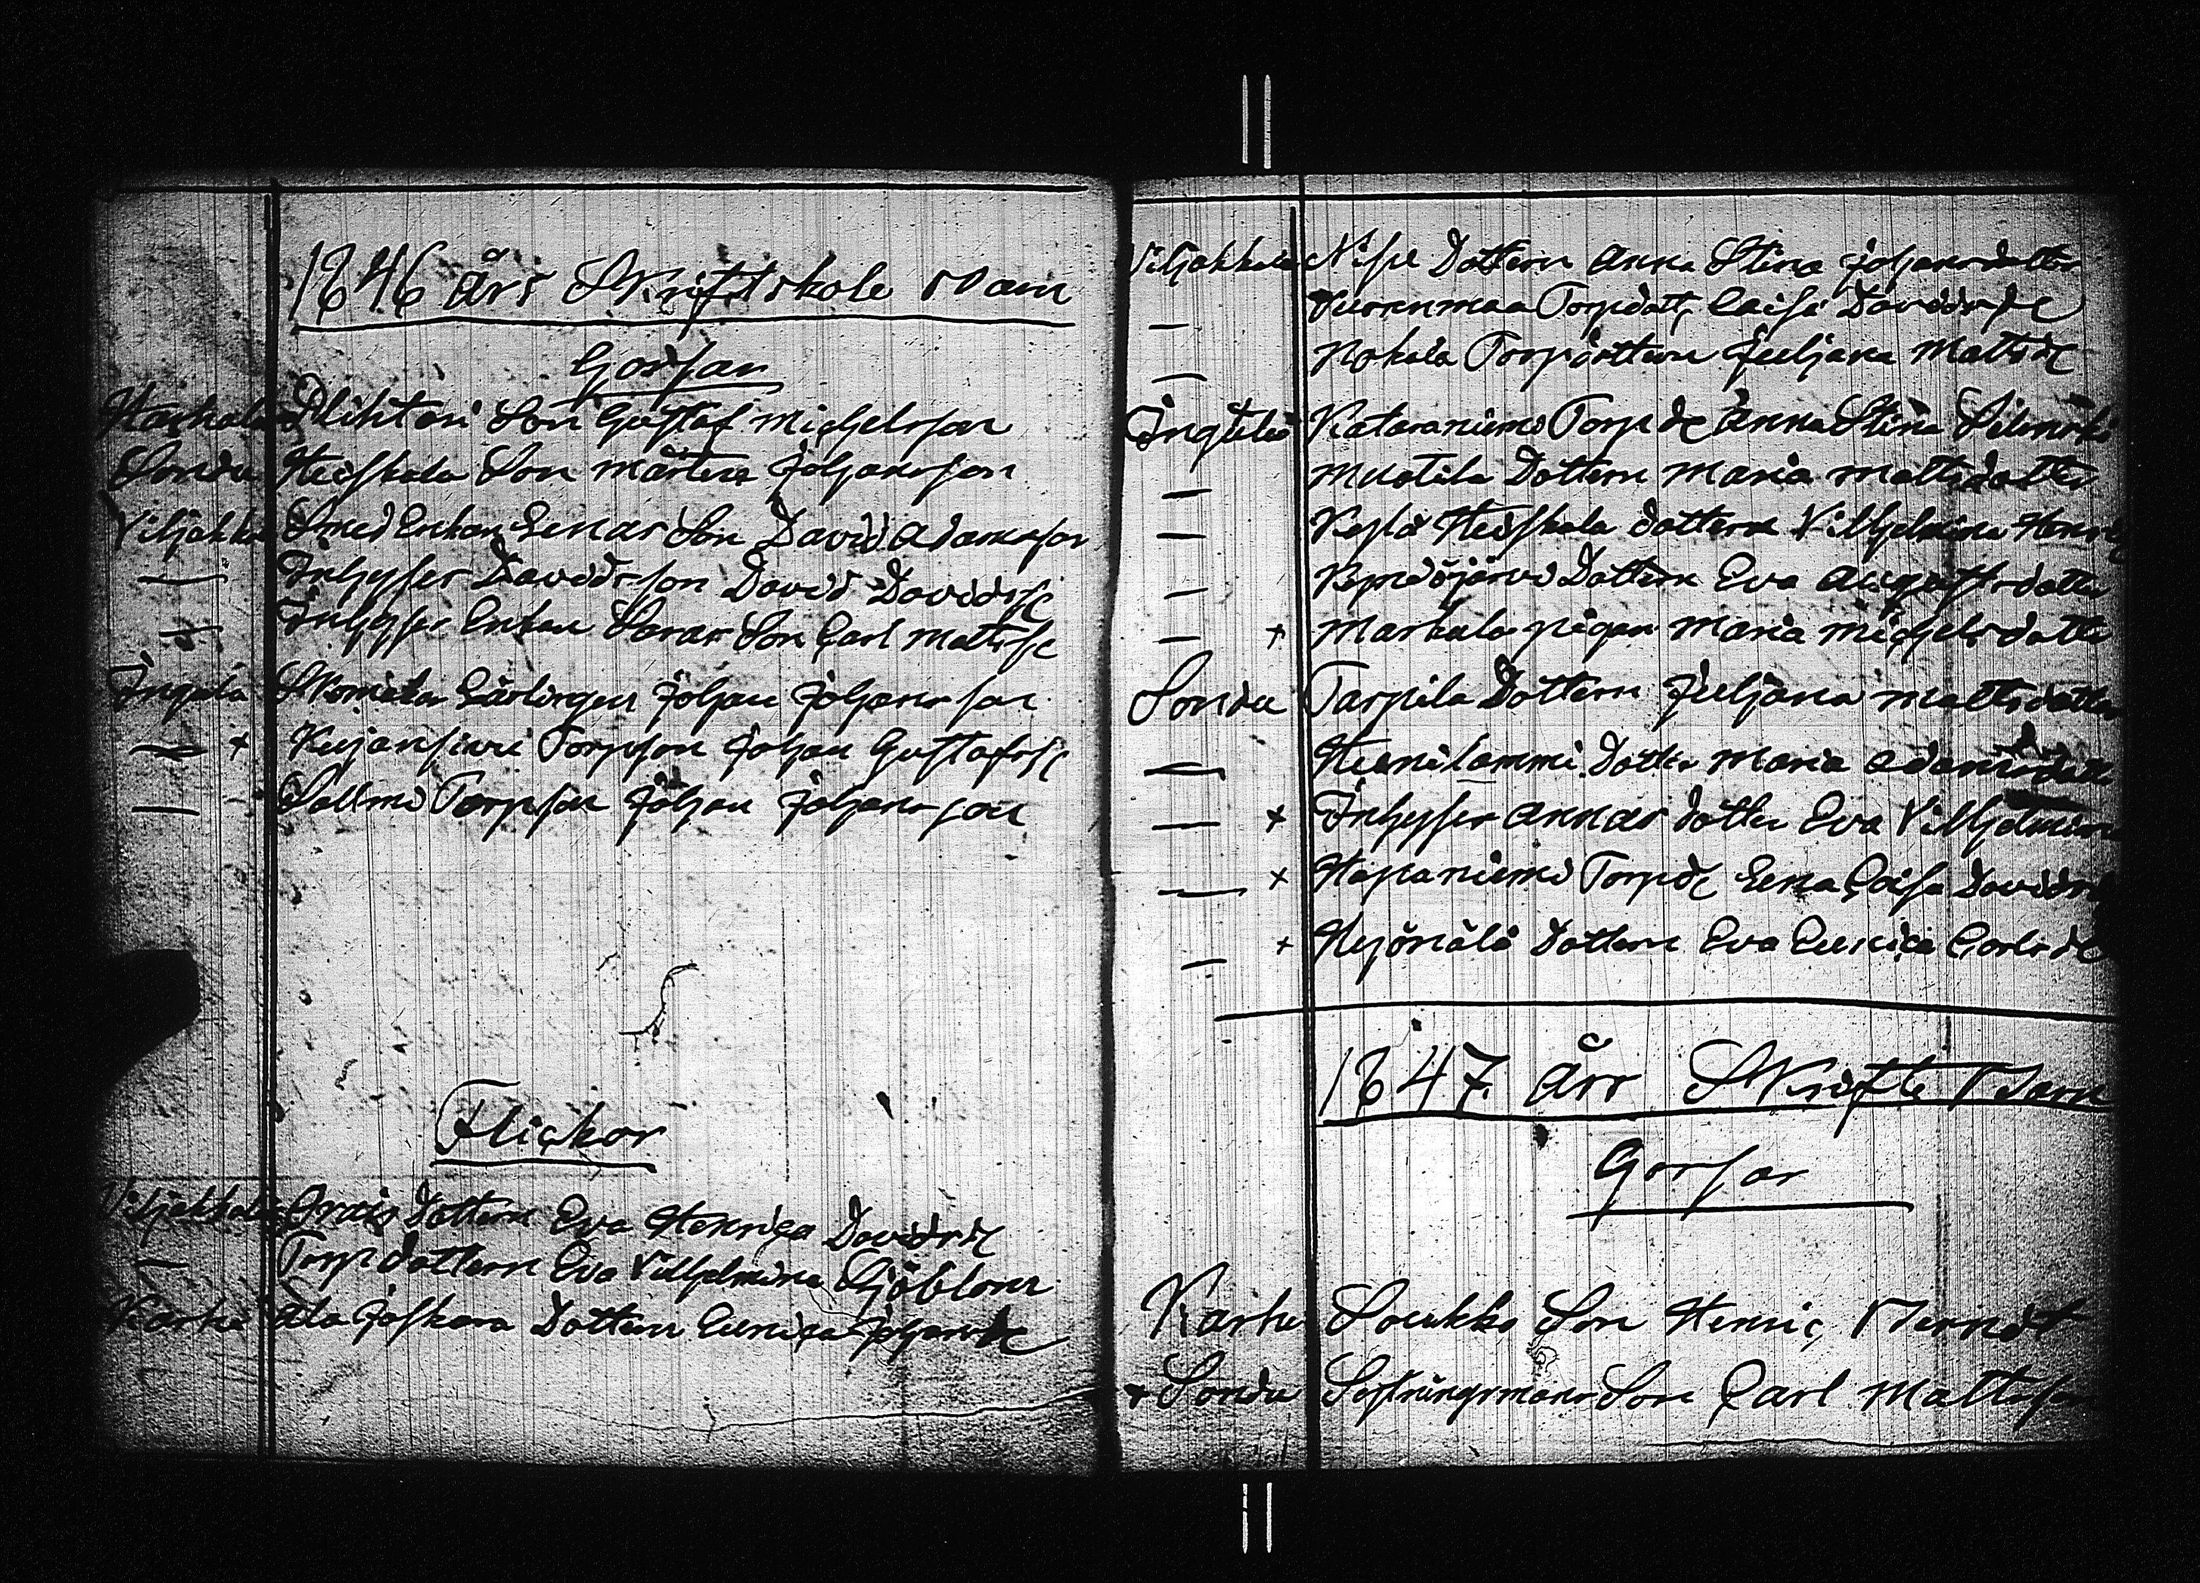 1846 års Skriftskole Barn
Gossar
Haekala Plihtari Son Gustaf Michelsson
Sondu Heiskala Son Mårten Johansson
Viljakka Smed Enkan Lenas Son David Adamsson
— Inhyses Davids son David Davidss
— Inhyses Enkan Saras Son Carl Matss
Ingulu Skomakar Lärlingen Johan Johansson
— + Kujansivu Torpson Johan Gustafss
— Salmi Torpson Johan Johansson
Flickor
Viljakkala Dottern Eva Henrica Davidsdr
— Torpdottern Eva Vilhelmina Sjöblom
Karhe Ala Joskara Dottern Eunica Johansdr
Viljakkala Nisse Dottern Anna Stina Johansdotter
— Vuorenmaa Torpdott. Caisa Davidsdr
— Kokala Torpdottern Juljana Matsdr
Ingulu Kataraniemi Torpdr Anna Stina
— Muotila Dottern Maria Mattsdotter
— Heiskala Dottern Vilhelmina Henric
— Dottern Eva Augustsdotter
— + Markula pigan Maria Michelsdotter
Sondu Tarpila Dottern Juljana Mattsdotter
— Hienilammi Dotter Maria Adamsdotter
— + Inhyses Annas dotter Eva Vilhelmina
— + Hapaniemi Torpdr Lena Caisa Davidsdr
— + Dottern Eva Eunica Carlsdr
1847 års Skrifte Barn
Gossar
Karhe Soukko Son Henric Berndt
+ Sondu Son Carl Mattsson